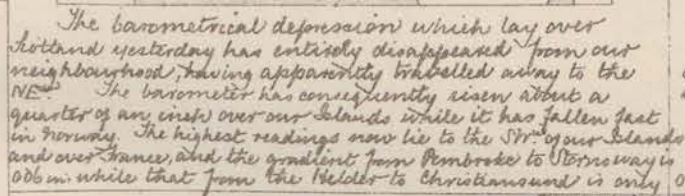 The barometrical depression which lay over
Scotland yesterday has entirely disappeared from our
neighbourhood, having apparently travelled away to the
NEd. The barometer has consequently risen about a
quarter of an inch over our Islands while it has fallen fast
in Norway. The highest readings now lie to the SWd of our Islands
and over France, and the gradient from Pembroke to Stornoway is
0.06 in. while that from the Helder to Christiansund is only 0